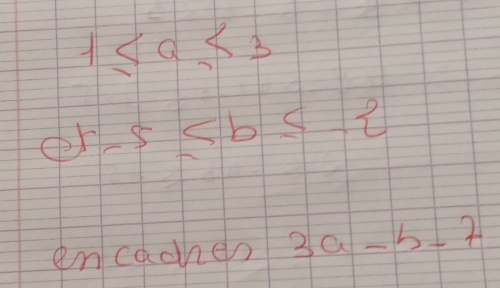 1 ≤ a ≤ 3
et -5 ≤ b ≤ -2
encadrer 3a - b - 7